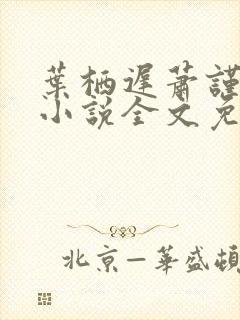 葉栖遲蕭謹
小説全文免
北京—華盛頓